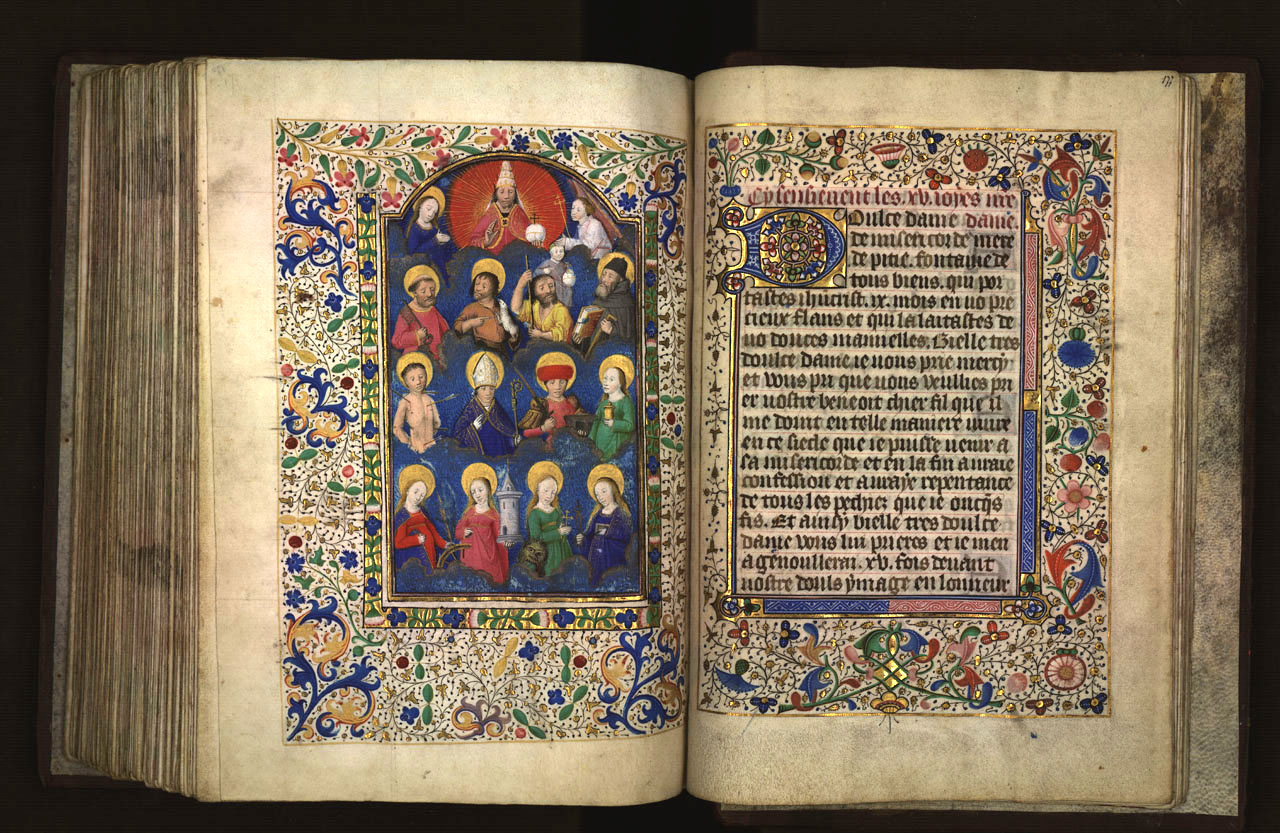 Cy sensieuent les .xv. ioyes nre
Doulce dame dame
de misericorde mere
de pitie. fontaine de
tous biens. qui por
tastes ihucrist .ix. mois en uo pre
cieux flans et qui lalaitastes de
uo douces mamelles. Bielle tres
doulce dame ie uous prie mercy
et vous pri que uous veullies pri
er uostre benoit chier fil que il
me doint en telle maniere uiure
en ce siecle que ie puisse uenir a
sa misericorde et en la fin auraie
confession et auraye repentance
de tous les pechiez que ie oncqs
fis. Et ainsy bielle tres doulce
dame vous lui prieres et ie men
agenoullerai .xv. fois deuant
uostre douls ymage en lonneur